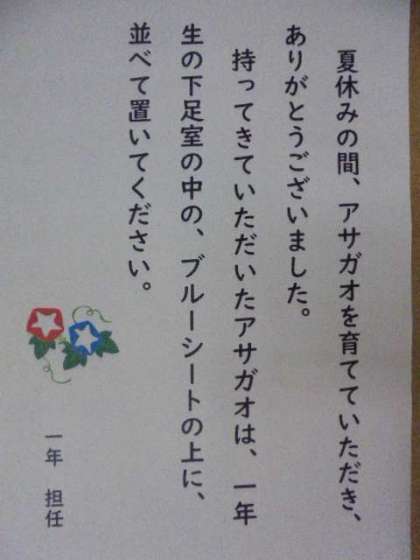 夏休みの間、アサガオを育てていただき、
ありがとうございました。
持ってきていただいたアサガオは、一年
生の下足室の中の、ブルーシートの上に、
並べて置いてください。
一年 担任